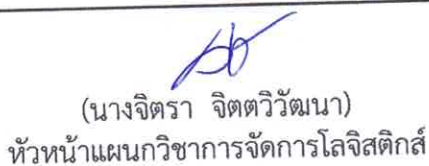 (นางจิตรา จิตตวิวัฒนา)
หัวหน้าแผนกวิชาการจัดการโลจิสติกส์